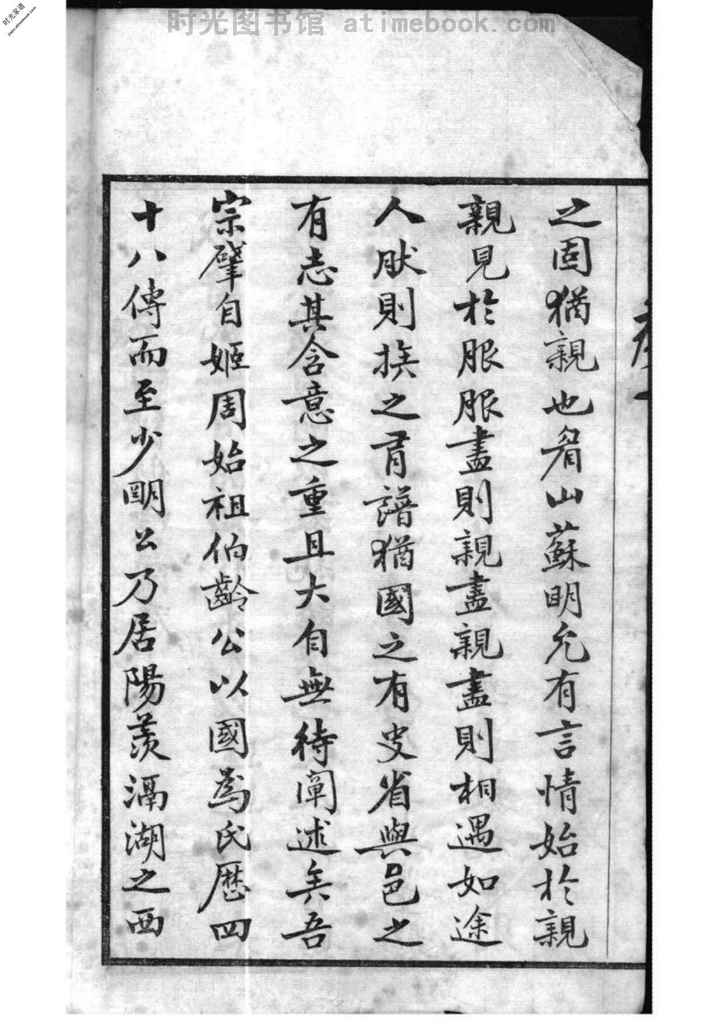 时光图书馆 atimebook.com
之固猶親也眉山蘇明允有言情始於親
親見於服服盡則親盡親盡則相遇如途
人肰則族之有譜猶國之有史省與邑之
有志其含意之重且大自無待闡述矣吾
宗肇自姬周始祖伯齡公以國為氏歷四
十八傳而至少明公乃居陽羨滆湖之西